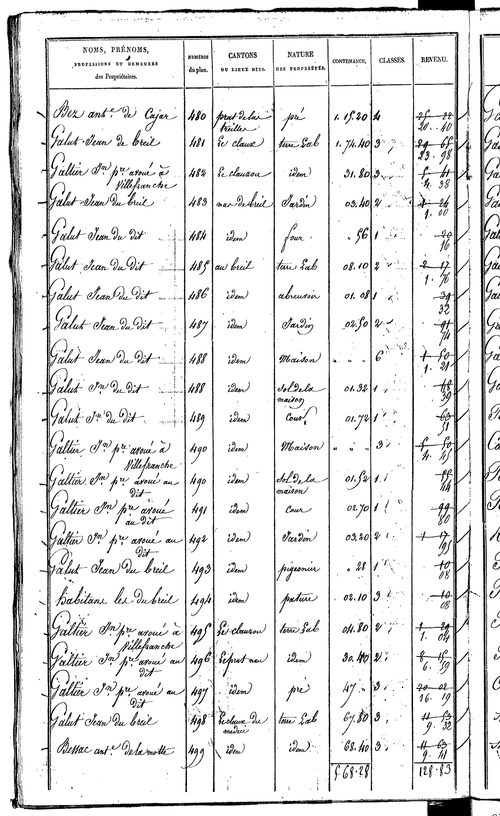 NOMS, PRÉNOMS,
PROFESSIONS ET DEMEURES
des Propriétaires.
NUMÉROS
du plan.
CANTONS
OU LIEUX DITS.
NATURE
DES PROPRIÉTÉS.
CONTENANCE.
CLASSES.
REVENU.
Bez ant.e de Cajar 480 prat de la treille pré 1. 15. 20 4 20. 40
Galut Jean de breil 481 Le claux terre Lab 1. 74. 40 3 23. 98
Galtier Jn. pre. avoué à Villefranche 482 Le clauzou idem 31. 80 3 4. 38
Galut Jean du breil 483 mas de breil Jardin 03. 40 2 1. 00
Galut Jean du dit 484 idem four . 56 1 16
Galut Jean du dit 485 au breil terre Lab 08. 10 2 1. 76
Galut Jean du dit 486 idem abreuvoir 01. 08 1 32
Galut Jean du dit 487 idem Jardin 02. 50 2 74
Galut Jean du dit 488 idem Maison " " " 6 1. 21
Galut Jn. du dit 488 idem Sol de la maison 01. 32 1 39
Galut Jn. du dit 489 idem Cour 01. 72 1 51
Galtier Jn. pre. avoué à Villefranche 490 idem Maison " " " 3 4. 45
Galtier Jn. pre. avoué au dit 490 idem Sol de la maison 01. 52 1 44
Galtier Jn. pre. avoué au dit 491 idem Cour 02. 70 1 80
Galtier Jn. pre. avoué au dit 492 idem Jardin 03. 20 2 95
Galut Jean du breil 493 idem pigeonier " 28 1 08
habitans les du breil 494 idem pature 02. 10 3 08
Galtier Jn. pre. avoué à Villefranche 495 Le clauzou terre Lab 04. 80 2 1. 04
Galtier Jn. pre. avoué au dit 496 Le prat nau idem 30. 40 2 6. 59
Galtier Jn. pre. avoué au dit 497 idem pré 47 " 3 16. 19
Galut Jean du breil 498 Le claux du terre Lab 67. 80 3 9. 32
Bessac ant.e de la motte 499 idem idem 68. 40 3 9. 41
5. 68. 28 128. 83